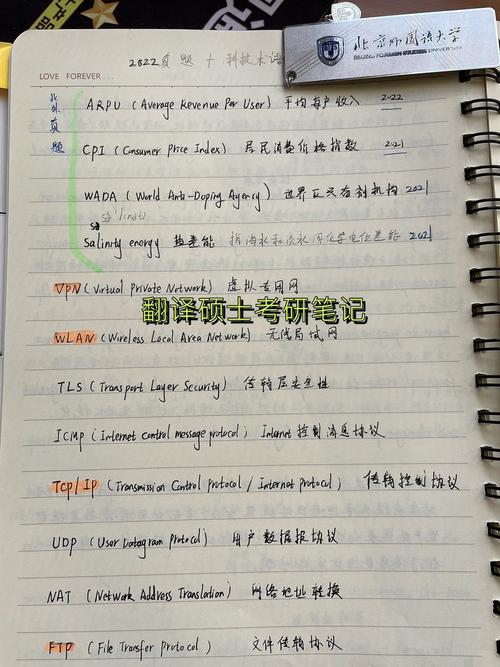 北京外国语大学
BEIJING FOREIGN STUDIES UNIVERSITY
2022真题 + 科技术语
LOVE FOREVER...
北外真题
ARPU (Average Revenue Per User) 平均每户收入 2022
CPI (Consumer Price Index) 居民消费价格指数 2021
WADA (World Anti-Doping Agency) 世界反兴奋剂机构 2021
Salinity energy 盐差能 指海水和淡水间化学电位差能 2021
VPN (Virtual Private Network) 虚拟专用网
翻译硕士考研笔记
WLAN (Wireless Local Area Network) 无线局域网
TLS (Transport Layer Security) 传输层安全性
ICMP (Internet control message protocol) Internet 控制消息协议
TCP/IP (Transmission Control protocol / Internet protocol) 传输控制协议
UDP (User Datagram protocol) 用户数据报协议
NAT (Network Address Translation) 网络地址转换
FTP (File Transfer protocol) 文件传输协议